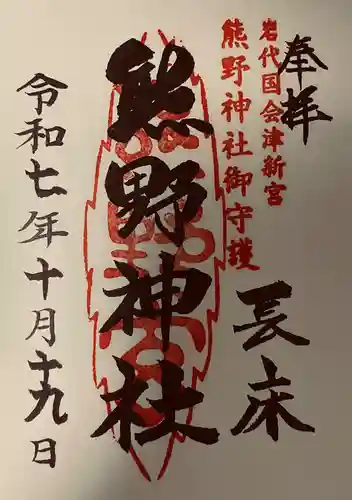 奉拝
岩代国会津新宮
熊野神社御守護
長床
熊野神社
令和七年十月十九日